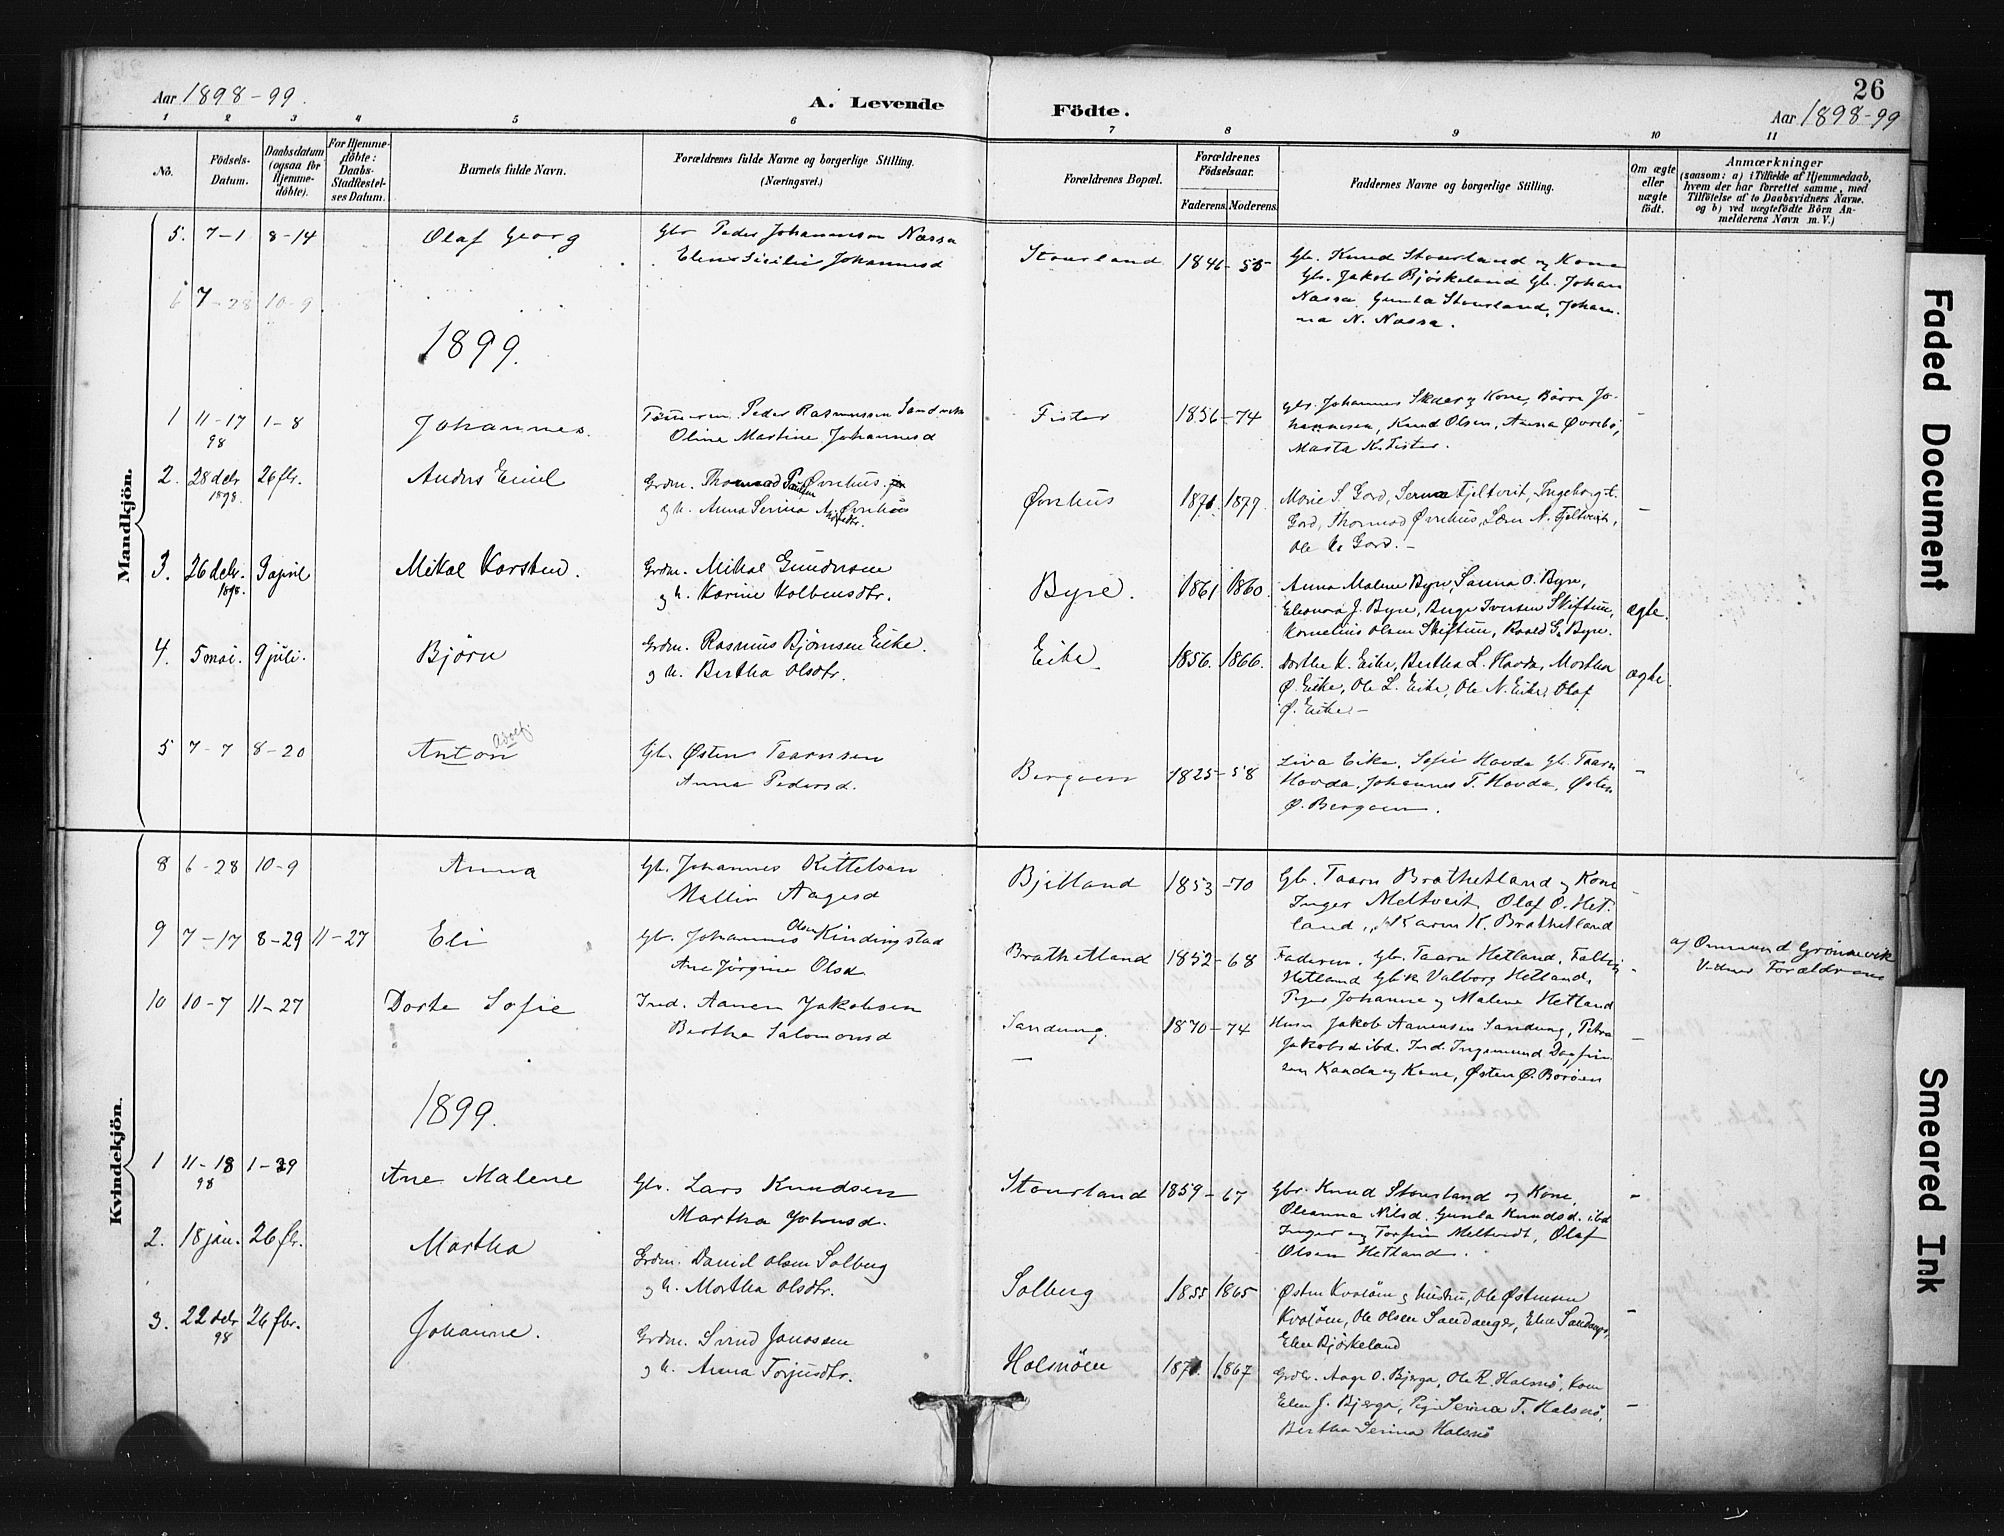 26
Aar 1898-99.
A. Levende Födte.
Aar 1898-99
1 2 3 4 5 6 7 8 9 10 11
No.
Födsels-Datum.
Daabsdatum (ogsaa for Hjemme-døbte).
For Hjemme-døbte: Daabs-Stadfæstel-ses Datum.
Barnets fulde Navn.
Forældrenes fulde Navne og borgerlige Stilling.
(Næringsvei.)
Forældrenes Bopæl.
Forældrenes Födselsaar.
Faderens. Moderens.
Faddernes Navne og borgerlige Stilling.
Om ægte eller uægte födt.
Anmærkninger
(saasom: a) i Tilfælde af Hjemmedaab, hvem der har forrettet samme, med Tilföielse af to Daabsvidners Navne, og b) ved uægtefödte Börn An-melderens Navn m. V.)
Mandkjön.
5. 7-1 8-14 Olaf Georg Gbr Peder Johannesen Næssa
Elen Sicilie Johannesd
Stourland 1846-55 Gb. Knud Stourland og Kone
Gb. Jakob Bjørkeland Gb. Johan
Næssa, Gunla Stourland, Johan-
na N. Næssa.
6 7-28 10-9
1899.
1 11-17 98 1-8 Johannes. Peder Rasmussen Sandvik
Oline Martine Johannesd
Fister 1856-74 Gbr. Johannes Skaar og Kone, Børre Jo-
hannesen, Knud Olsen, Anna Øvrebø,
Marta K. Fister. -
2. 28 debr 1898. 26 fbr. Anders Emil Grdm. Thomas Paulsen Øvrehus
og h. Anna Serina A. Øvrehus
Øvrehus 1871. 1879. Marie S. Gard, Serina Fjeltveit, Ingeborg L.
Gard, Thomas Øvrehus, Lars N. Fjeltveit,
Ole K. Gard. - -
3. 26 debr. 1898. 9 april Mikal Karsten. Grdm. Mikal Gundersen
og h. Karine Kolbensdtr.
Byre. 1861 1860. Anna Malene Byre, Sanna O. Byre,
Eleonora J. Byre, Berge Iversen Skiftun,
Kornelius Olsen Skiftun, Roald G. Byre. ægte.
4. 5 mai. 9 juli. Bjørn Grdm. Rasmus Bjørnsen Eike.
og h. Bertha Olsdtr.
Eike 1856. 1866. Dorthe K. Eike, Bertha L. Hovda, Martha
Ø. Eike, Ole L. Eike, Ole N. Eike, Olaf
Ø. Eike. - ægte.
5 7-7 8-20 Anton Adolf Gb. Østen Taarnsen
Anna Pedersd.
Bergøen 1825-58 Liva Eike, Sofie Hovda Gb. Taarn
Hovda, Johannes T. Hovda, Østen
Ø. Bergøen. -
Kvindekjön.
8 6-28 10-9 Anna Gb. Johannes Kittelsen
Mallin Aagesd
Bjelland 1853-70 Gb. Taarn Brathetland og Kone
Inger Meltveit, Olaf O. Het-
land, Karen K. Brathetland
9 7-17 8-29 11-27 Eli Gb. Johannes Olsen Kindingstad
Ane Jørgine Olsd.
Brathetland 1852-68 Faderen, Gb. Taarn Hetland, Falkin
Hetland Gbk Valborg Hetland,
Piger Johanne og Malene Hetland
af Ommund Grønnevik
Vidner Forældrene
10 10-7 11-27 Dorte Sofie Ind. Aanen Jakobsen
Bertha Salomonsd
Sandvug. 1870-74 Husm Jakob Aanensen Sandvug, Petra
Jakobsd ibd. Ind. Ingemund Dagfin-
sen Kanda og Kone, Østen Ø. Borøen
1899.
1 11-18 98 1-29 Ane Malene Gbr. Lars Knudsen
Martha Johnsd.
Stourland 1859-67 Gbr. Knud Stourland og Kone,
Oleanna Nilsd. Gunla Knudsd. ibd
Inger og Torfin Meltvidt, Olaf
Olsen Hetland. -
2. 18 jan. 26 fbr. Martha Grdm. Daniel Olsen Solberg
og h. Martha Olsdtr.
Solberg 1855 1865 Østen Kvaløen og hustru, Ole Østensen
Kvaløen, Ole Olsen Sandanger, Elen Sandanger,
Elen Bjørkeland -
3. 22 debr 98 26 fbr. Johanne. Grdm. Svend Janossen
og h. Anna Torjusdtr.
Halsnøen 1871. 1867 Grdbr. Aage O. Bjerga, Ole R. Halsnø, Kone
Elen J. Bjerga, Pig. Serina T. Halsnø,
Bertha Serina Halsnø -
Faded Document
Smeared Ink